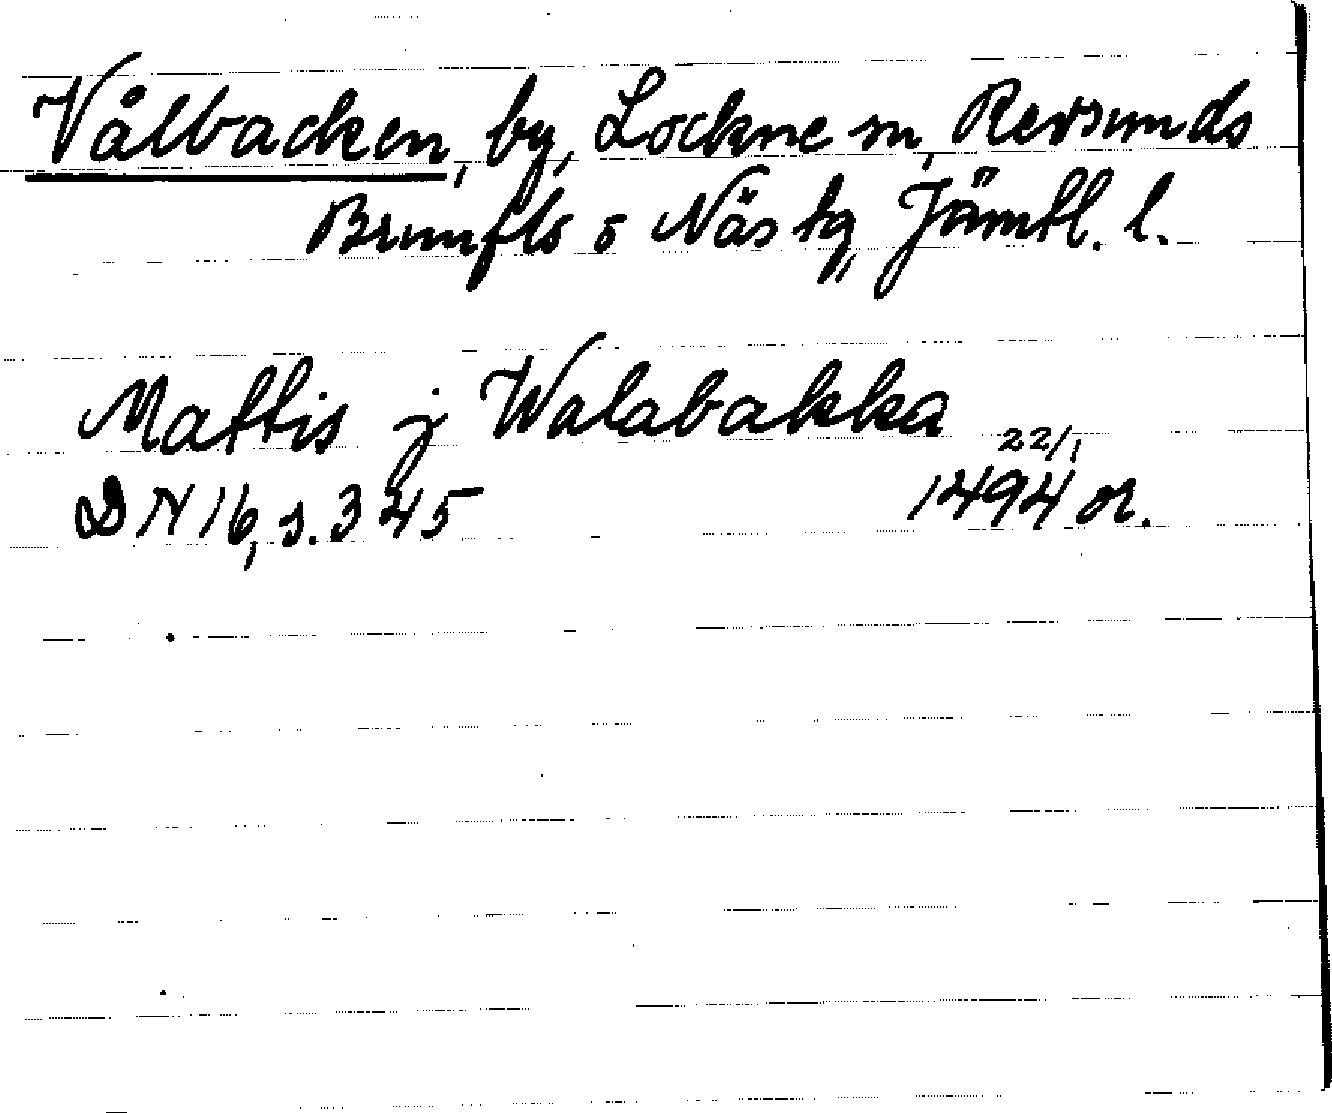 Vålbacken, by, Lockne sn, Revsunds
Brunflo o Näs tg, Jämtl. l.
Mattis j Walabakka
22/1
DN 16, s. 345 1494 or.